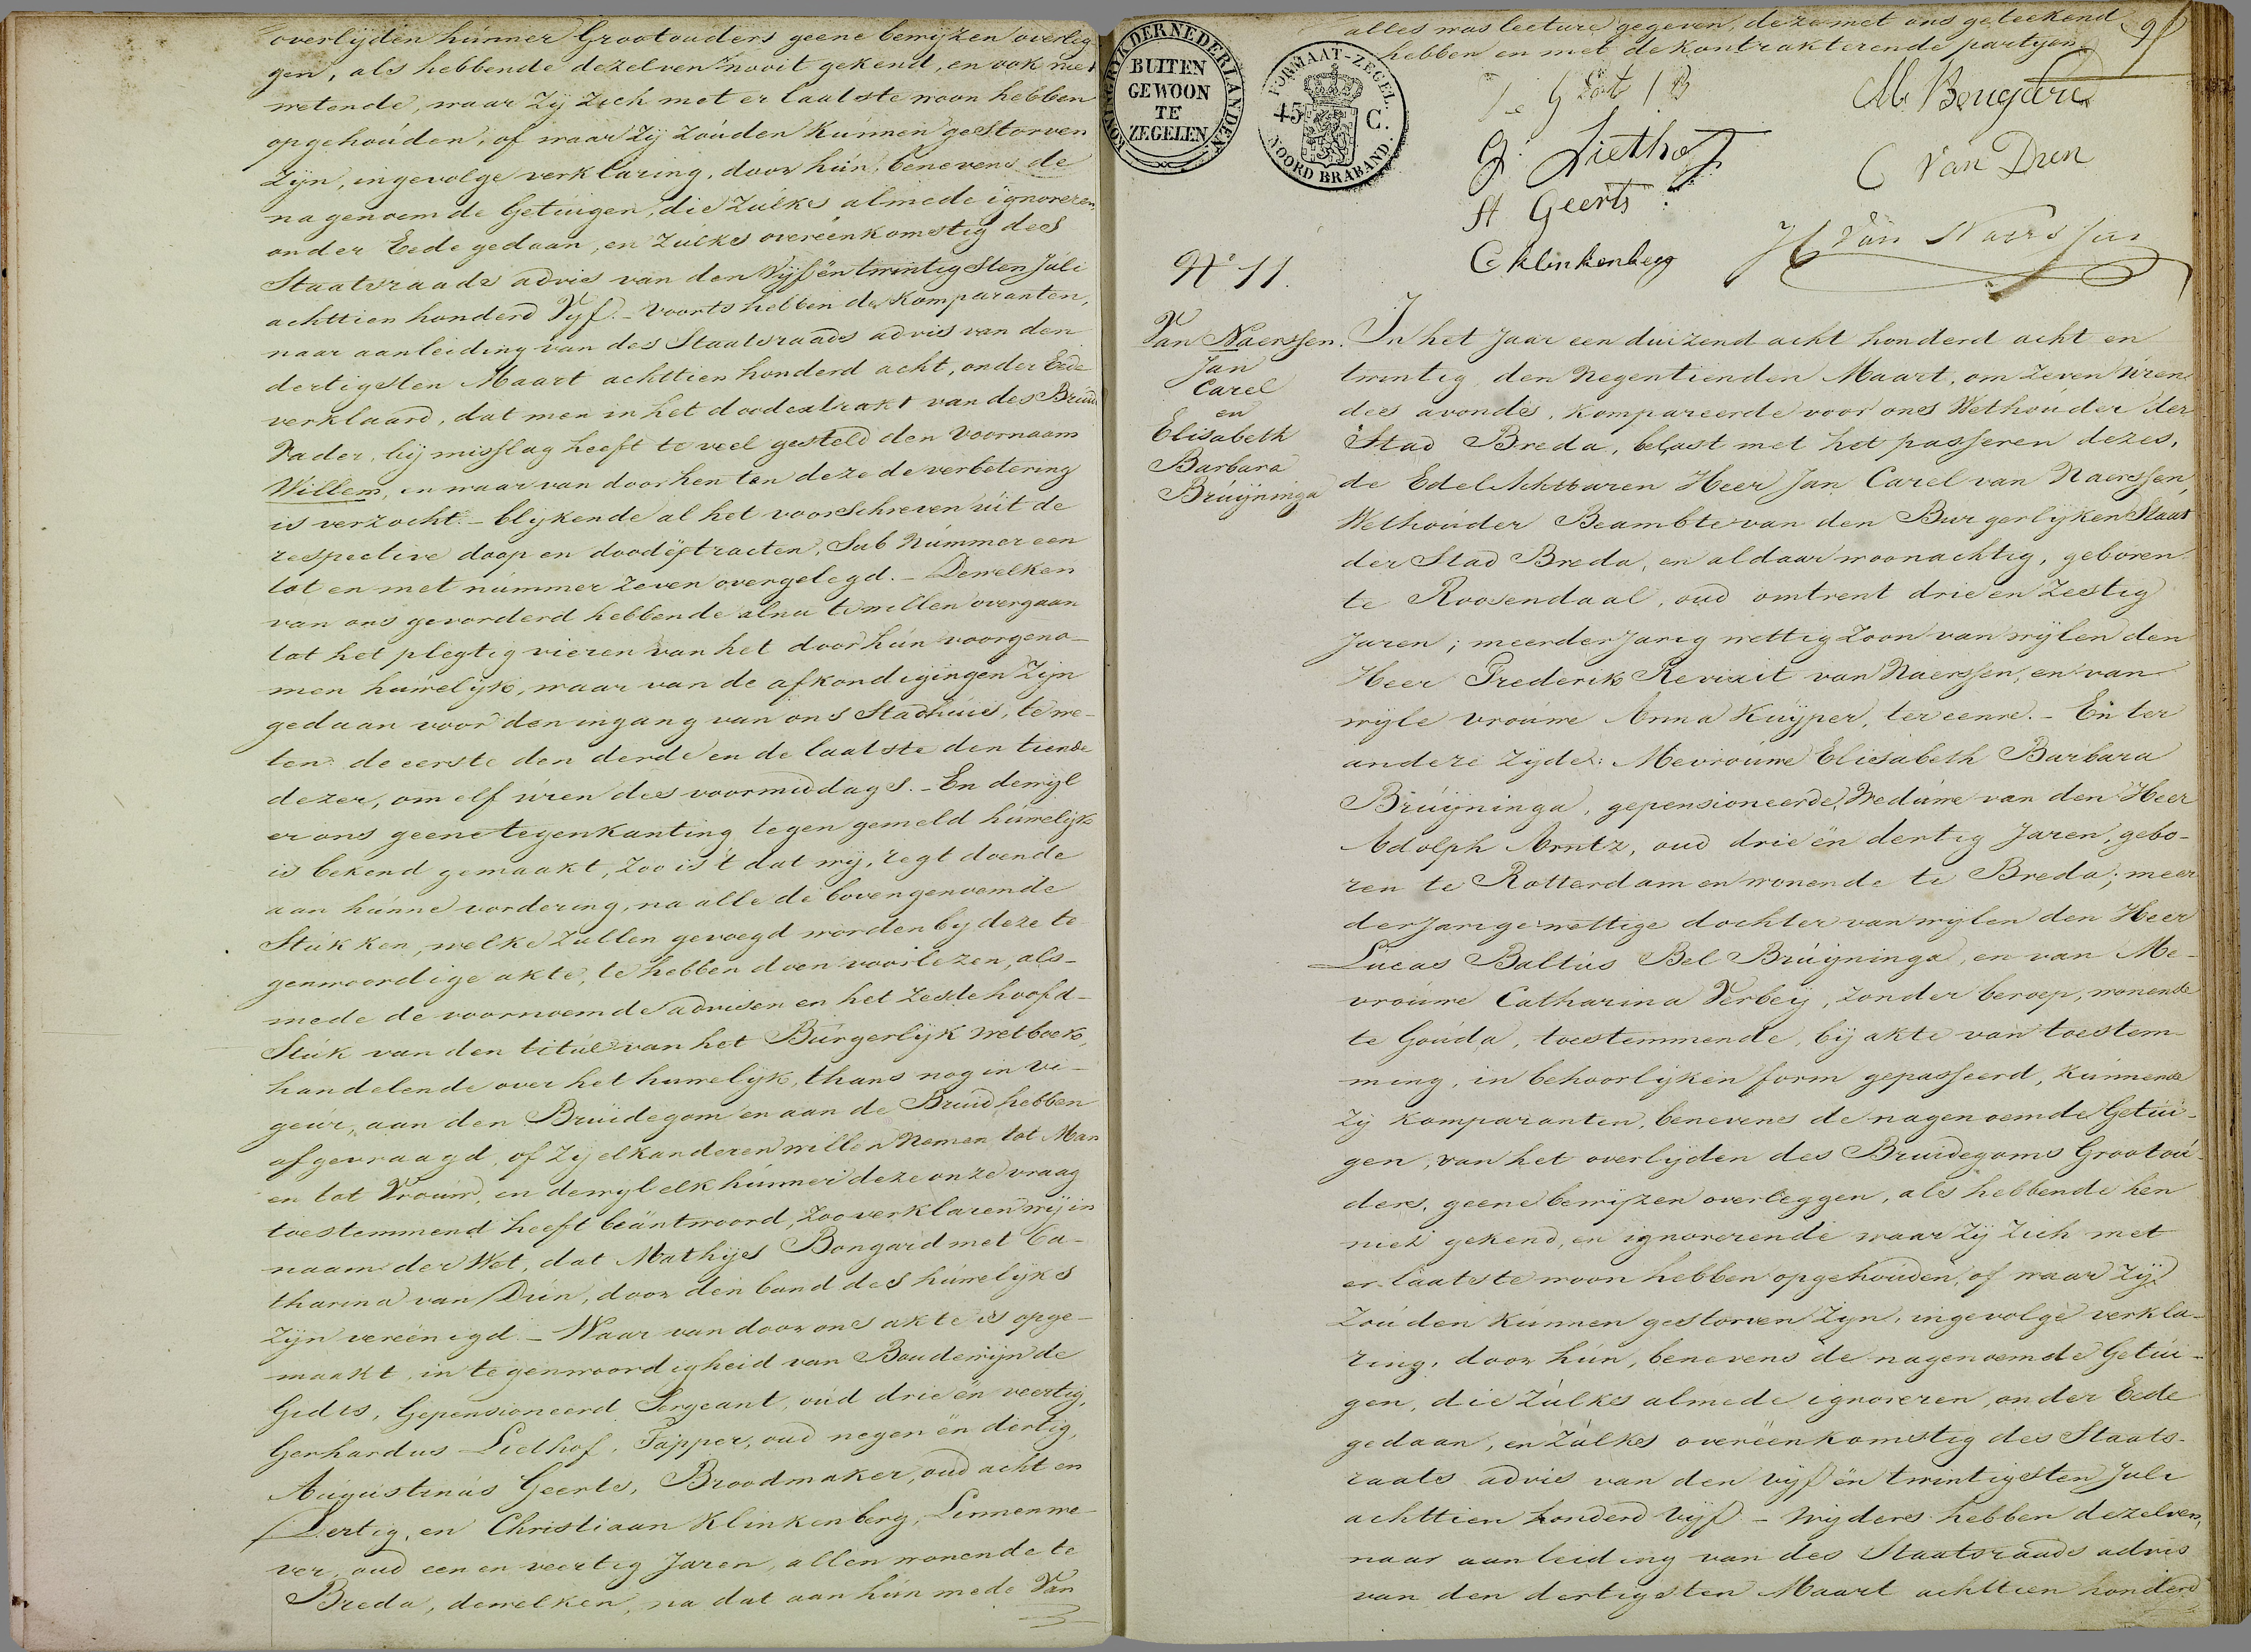 overlijden hunner Grootouders geene bewijzen overleg
gen, als hebbende dezelven nooit gekend, en ook niet
wetende, waar Zij Zich met er laatste woon hebben
opgehouden, of waar Zij Zouden Kunnen gestorven
Zijn, ingevolge verklaring, door hun, benevens de
nagenoemde Getuigen, die Zulks almede ignoreren,
onder Eede gedaan, en Zulks overeenkomstig des
Staatsraads advis van den Vijf en twintigsten Juli
achttien honderd Vijf. - Voorts hebben de Komparanten,
naar aanleiding van des Staatsraads advis van den
dertigsten Maart achttien honderd acht, onder Eede
verklaard, dat men in het doodextrakt van des Bruids
Vader, bij misslag heeft te veel gesteld den Voornaam
Willem, en waar van door hen ten deze de verbetering
is verzocht. - blijkende al het voorschreven uit de
respective doop en doodextracten, Sub Nummer een
tot en met nummer Zeven overgelegd. - Dewelken
van ons gevorderd hebbende alnu te willen overgaan
tot het plegtig vieren van het door hun voorgeno-
men huwelijk, waar van de afkondigingen Zijn
gedaan voor den ingang van ons Stadhuis, te we-
ten: de eerste den derde en de laatste den tiende
dezer, om elf uren des voormiddags. - En dewijl
er ons geene tegenkanting tegen gemeld huwelijk
is bekend gemaakt, Zoo is 't dat wij, regt doende
aan hunne vordering, na alle de bovengenoemde
Stukken, welke Zullen gevoegd worden bij deze te
genwoordige akte, te hebben doen voorlezen, als-
mede de voornoemde advisen en het Zesde hoofd-
Stuk van den titul van het Burgerlijk wetboek,
handelende over het huwelijk, thans nog in vi-
geur, aan den Bruidegom en aan de Bruid hebben
afgevraagd, of Zij elkanderen willen Nemen tot Man
en tot Vrouw, en dewijl elk hunner deze onze vraag
toestemmend heeft beäntwoord, Zoo verklaren wij in
naam der Wet, dat Mathijs Bongard met Ca-
tharina van Dun, door den band des huwelijks
Zijn vereenigd. - Waar van door ons akte is opge-
maakt, in tegenwoordigheid van Boudewijn de
Gidts, Gepensioneerd Sergeant, oud drie ën veertig,
Gerhardus Liethof, Tapper, oud negen ën dertig,
Augustinus Geerts, Broodmaker, oud acht en
Dertig, en Christiaan Klinkenberg, Linnenwe-
ver, oud een en veertig Jaren, allen wonende te
Breda, dewelken, na dat aan hun mede Van
alles was lecture gegeven, deze met ons geteekend
hebben en met de kontrakterende partyen
KONINGRYK DER NEDERLANDEN
BUITEN
GEWOON
TE
ZEGELEN
FORMAAT-ZEGEL.
45 C.
NOORD BRABAND.
M Bongard
G. Liethof
C Van Dun
A Geerts
C Klinkenberg
H Van Naerssen
No 11.
Van Naerssen.
Jan
Carel
en
Elisabeth
Barbara
Bruijninga
In het Jaar een duizend acht honderd acht en
twintig, den Negentienden Maart, om Zeven Uren
des avonds, Kompareerde voor ons Wethouder der
Stad Breda, belast met het passeren dezes,
de EdelAchtbaren Heer Jan Carel van Naerssen,
Wethouder Beambte van den Burgerlijken Staat
der Stad Breda, en aldaar woonachtig, geboren
te Roosendaal, oud omtrent drie en Zestig
Jaren; meerderjarig wettig Zoon van wijlen den
Heer Frederik Reviait van Naerssen, en van
wijle Vrouwe Anna Kuijper, ter eenre. - En ter
andere Zijde: Mevrouwe Elisabeth Barbara
Bruijninga, gepensioneerde Weduwe van den Heer
Adolph Arntz, oud drie ën dertig Jaren, gebo-
ren te Rotterdam en wonende te Breda; meer
derjarige wettige dochter van wijlen den Heer
Lucas Baltus Bel Bruijninga, en van Me-
vrouwe Catharina Verbeij, Zonder beroep, wonende
te Gouda, toestemmende, bij akte van toestem-
ming, in behoorlijken form gepasseerd, Kunnende
Zij Komparanten, benevens de nagenoemde Getui-
gen, van het overlijden des Bruidegoms Grootou-
ders, geene bewijzen overleggen, als hebbende hen
niet gekend, en ignorerende waar Zij Zich met
er laatste woon hebben opgehouden, of waar Zij
Zouden Kunnen gestorven Zijn, ingevolge verkla-
ring, door hun, benevens de nagenoemde Getui-
gen, die Zulks almede ignoreren, onder Eede
gedaan, en Zulks overeenkomstig des Staats-
raads advis van den vijf ën twintigsten Juli
achttien honderd vijf. - Wijders hebben dezelven,
naar aanleiding van des Staatsraads advis
van den dertigsten Maart achttien honderd